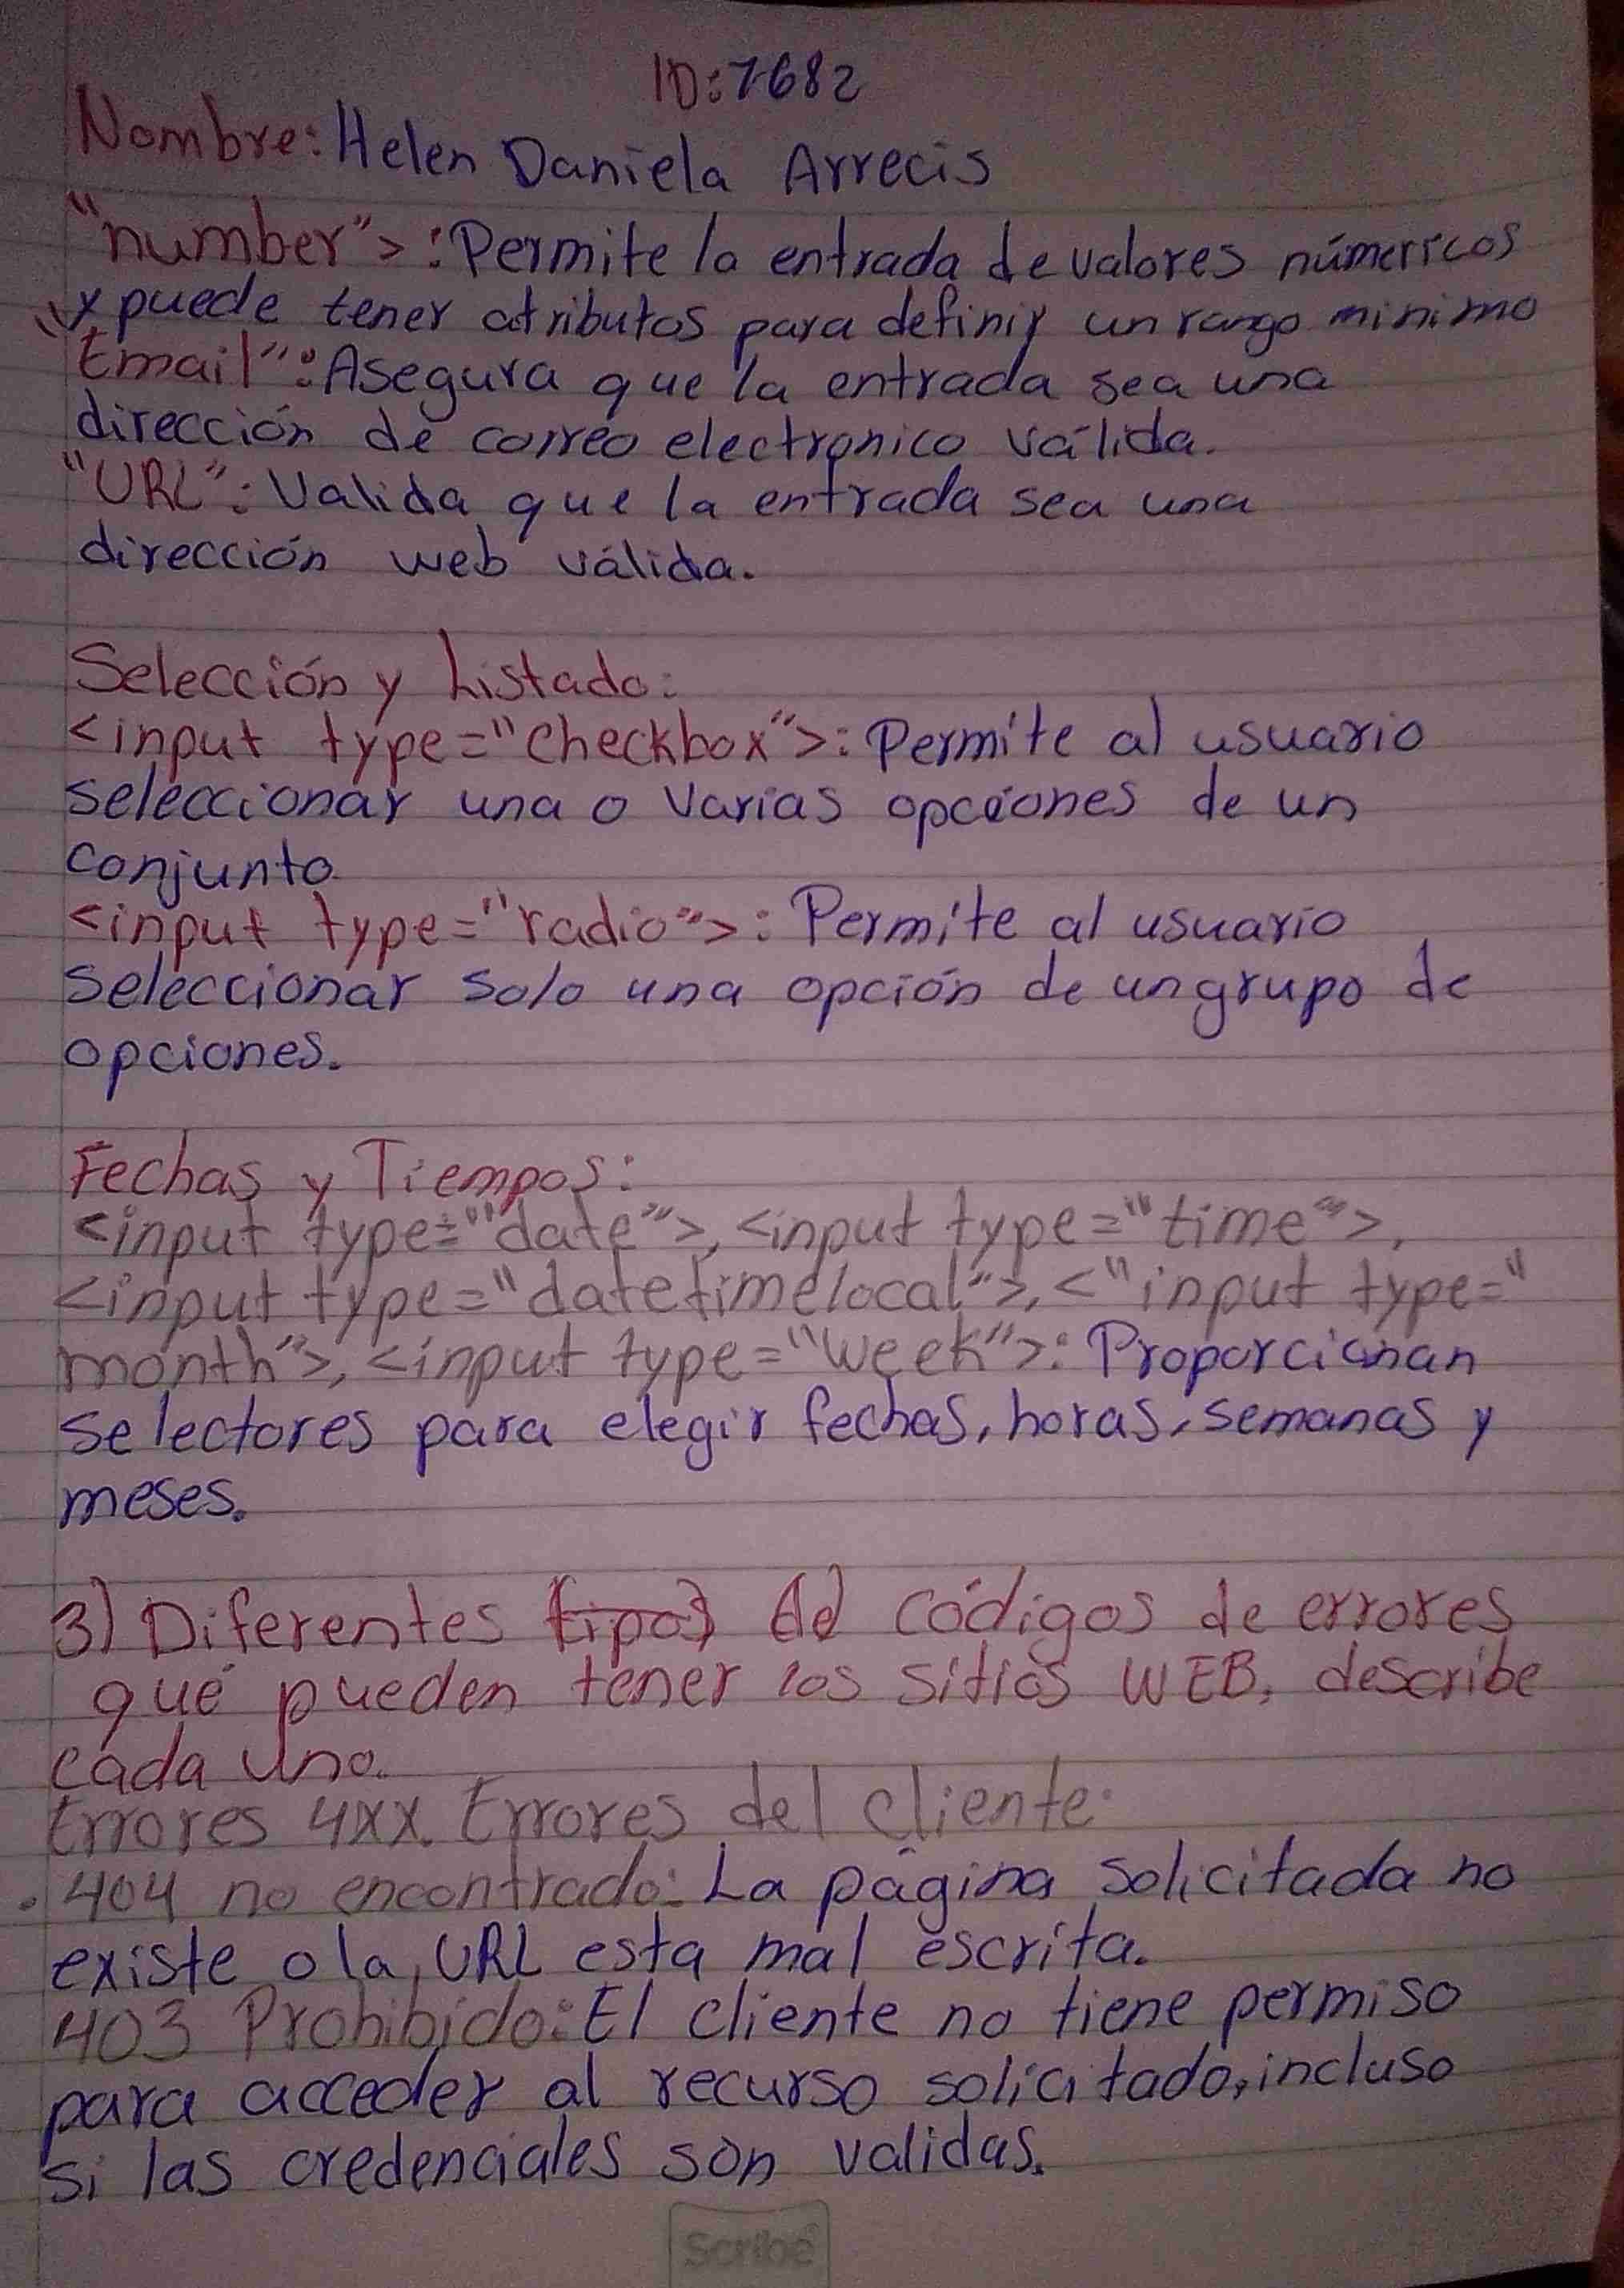 ID:7682
Nombre: Helen Daniela Arrecis
"number">: Permite la entrada de valores númericos
y puede tener atributos para definir un rango minimo
"Email": Asegura que la entrada sea una
dirección de correo electronico válida.
"URL": Valida que la entrada sea una
dirección web válida.
Selección y Listado:
<input type="checkbox">: Permite al usuario
seleccionar una o varias opciones de un
conjunto.
<input type="radio">: Permite al usuario
seleccionar solo una opción de un grupo de
opciones.
Fechas y Tiempos:
<input type="date">, <input type="time">,
<input type="datetimelocal">, <"input type="
month">, <input type="week">: Proporcionan
selectores para elegir fechas, horas, semanas y
meses.
3) Diferentes (tipos) (de) códigos de errores
que pueden tener los sitios WEB, describe
cada uno.
Errores 4xx. Errores del cliente.
. 404 no encontrado: La página solicitada no
existe o la URL esta mal escrita.
403 Prohibido: El cliente no tiene permiso
para acceder al recurso solicitado, incluso
si las credenciales son validas.
Scribe